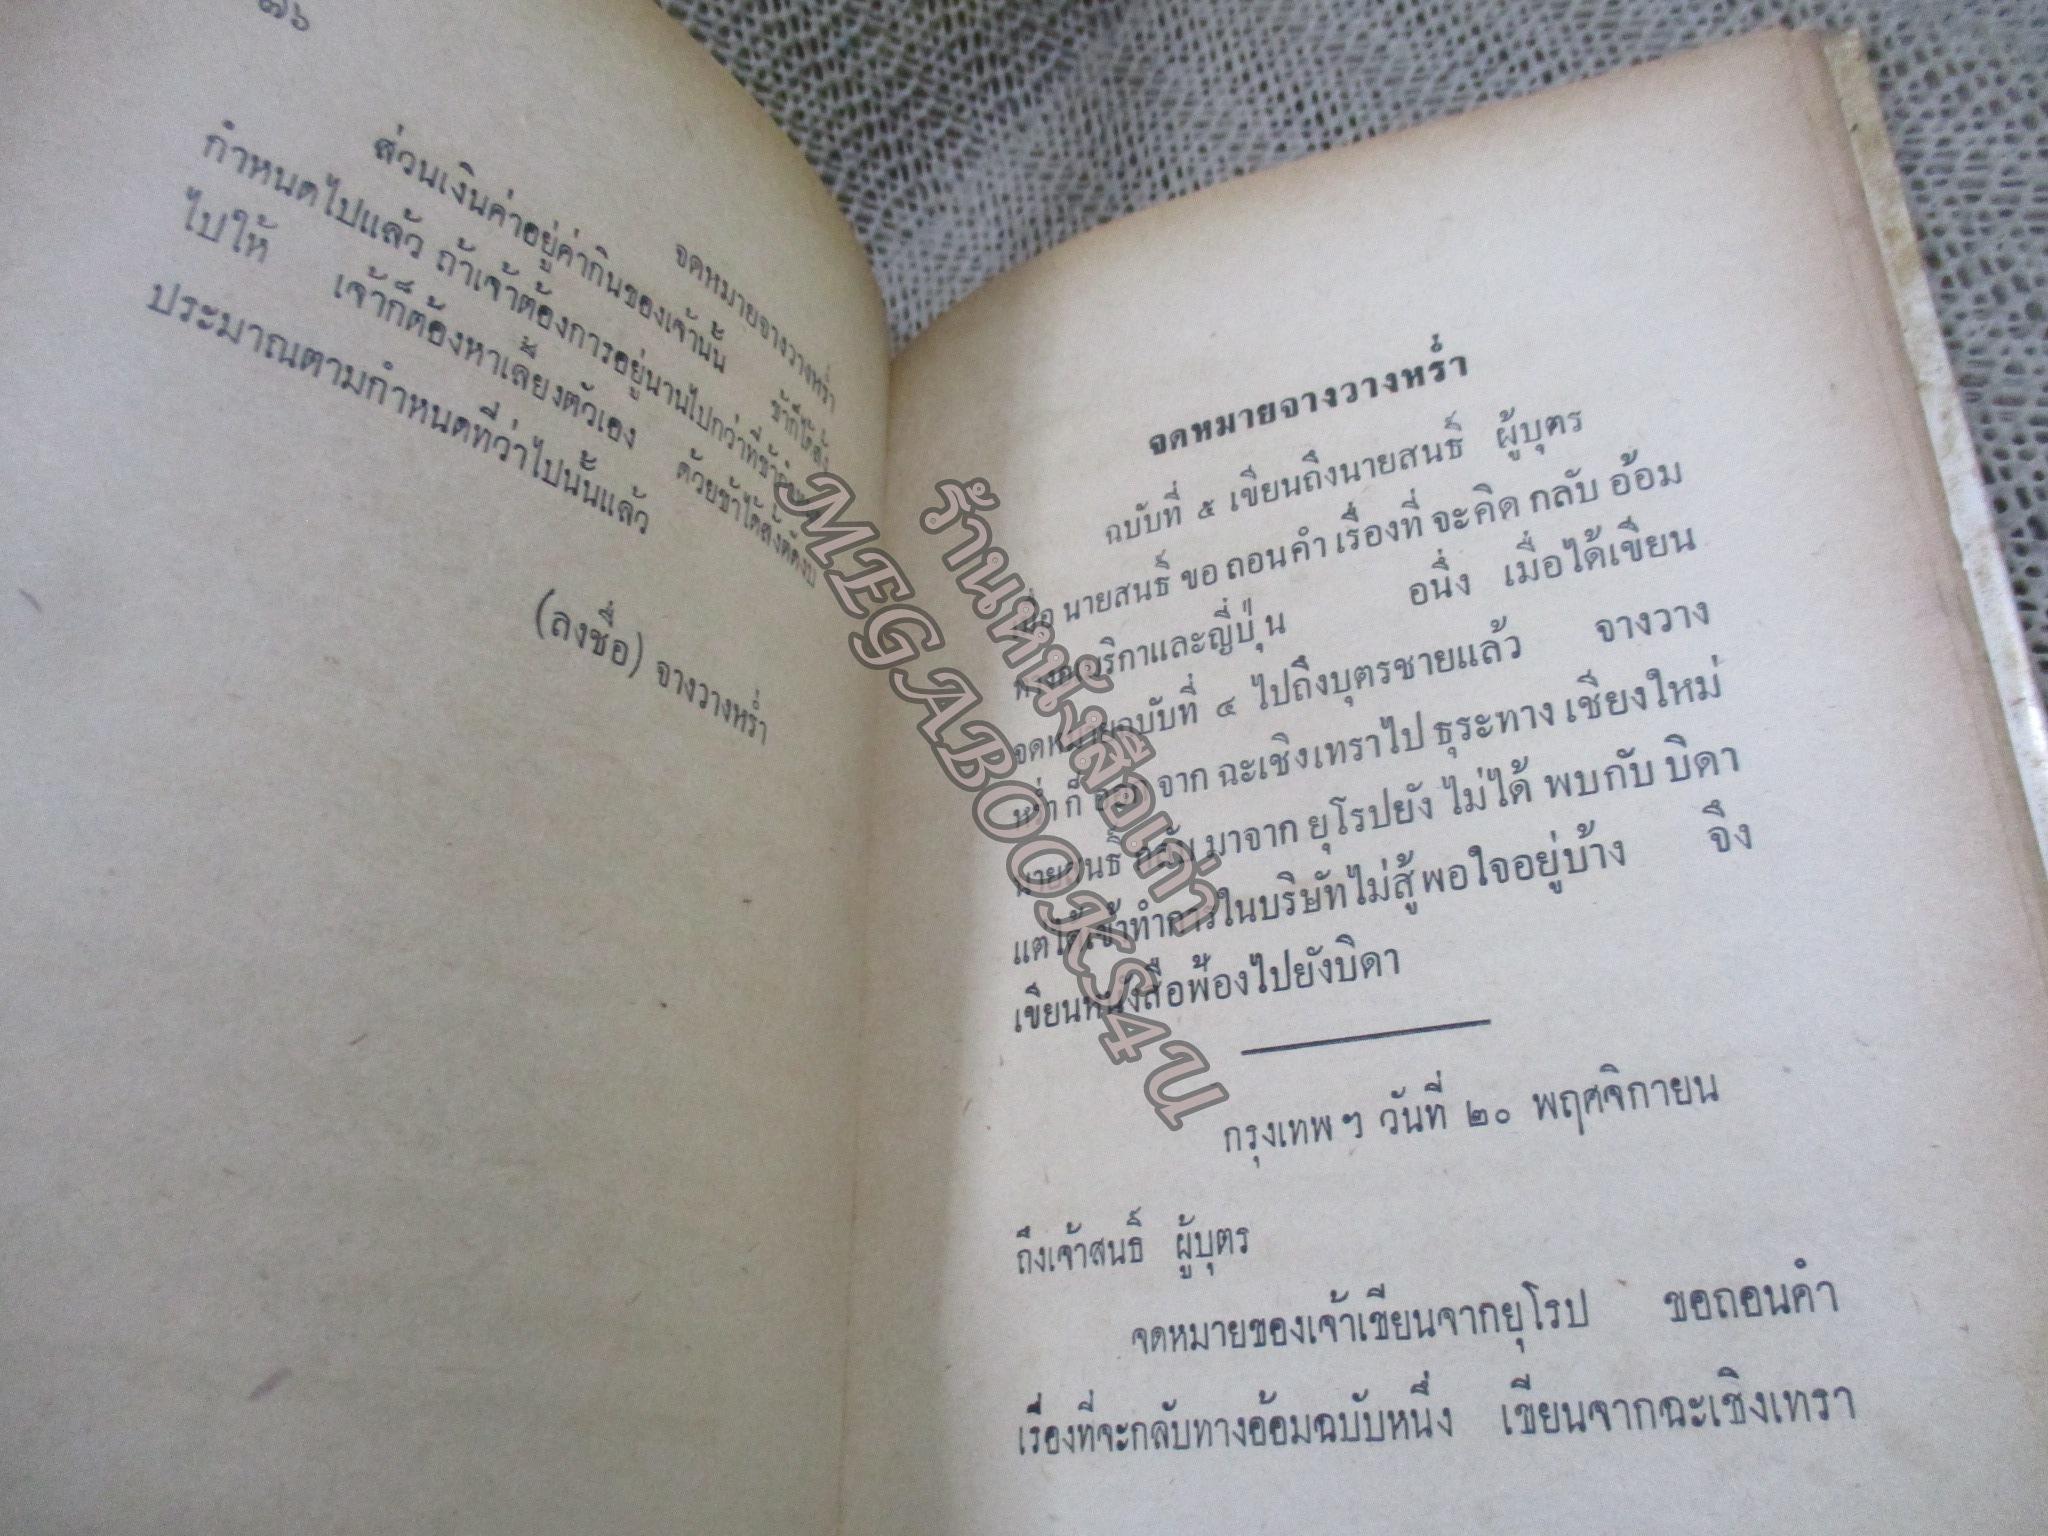 ๗๖
จดหมายจางวางหร่ำ
ส่วนเงินค่าอยู่ค่ากินของเจ้านั้น ข้าก็ได้สั่ง
กำหนดไปแล้ว ถ้าเจ้าต้องการอยู่นานไปกว่าที่ข้า
ไปให้ เจ้าก็ต้องหาเลี้ยงตัวเอง ด้วยข้าได้สั่งตัดงบ
ประมาณตามกำหนดที่ว่าไปนั้นแล้ว
(ลงชื่อ) จางวางหร่ำ
จดหมายจางวางหร่ำ
ฉบับที่ ๕ เขียนถึงนายสนธิ์ ผู้บุตร
เมื่อ นายสนธิ์ ขอ ถอน คำ เรื่องที่ จะ คิด กลับ อ้อม
ทางอเมริกาและญี่ปุ่น อนึ่ง เมื่อได้เขียน
จดหมายฉบับที่ ๔ ไปถึงบุตรชายแล้ว จางวาง
หร่ำ ก็ ออก จาก ฉะเชิงเทราไป ธุระทาง เชียงใหม่
นายสนธิ์ กลับ มาจาก ยุโรปยัง ไม่ได้ พบกับ บิดา
แต่ได้เข้าทำการในบริษัทไม่สู้พอใจอยู่บ้าง จึง
เขียนหนังสือฟ้องไปยังบิดา
กรุงเทพ ฯ วันที่ ๒๐ พฤศจิกายน
ถึงเจ้าสนธิ์ ผู้บุตร
จดหมายของเจ้าเขียนจากยุโรป ขอถอนคำ
เรื่องที่จะกลับทางอ้อมฉบับหนึ่ง เขียนจากฉะเชิงเทรา
ร้านหนังสือเก่า
MEGABOOKS4U